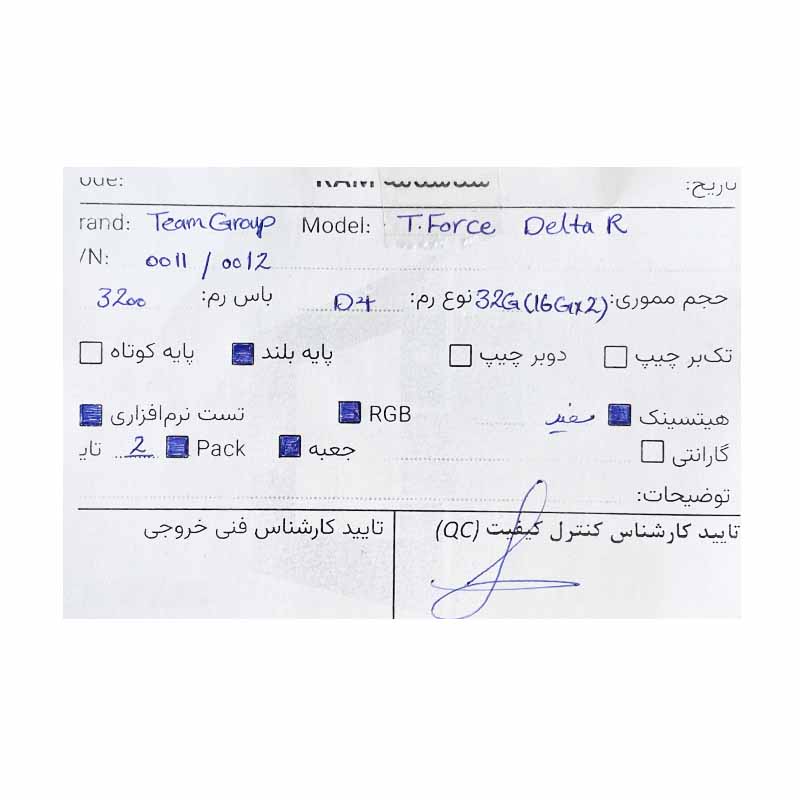 شناسنامه RAM تاریخ:
rand: Team Group Model: T.Force Delta R
/N: 0011 / 0012
حجم مموری: 32G (16G×2) نوع رم: D4 باس رم: 3200
تک‌بر چیپ دوبر چیپ پایه بلند پایه کوتاه
هیتسینک سفید RGB تست نرم‌افزاری
گارانتی جعبه Pack 2 تایـ
توضیحات:
تایید کارشناس کنترل کیفیت (QC) تایید کارشناس فنی خروجی